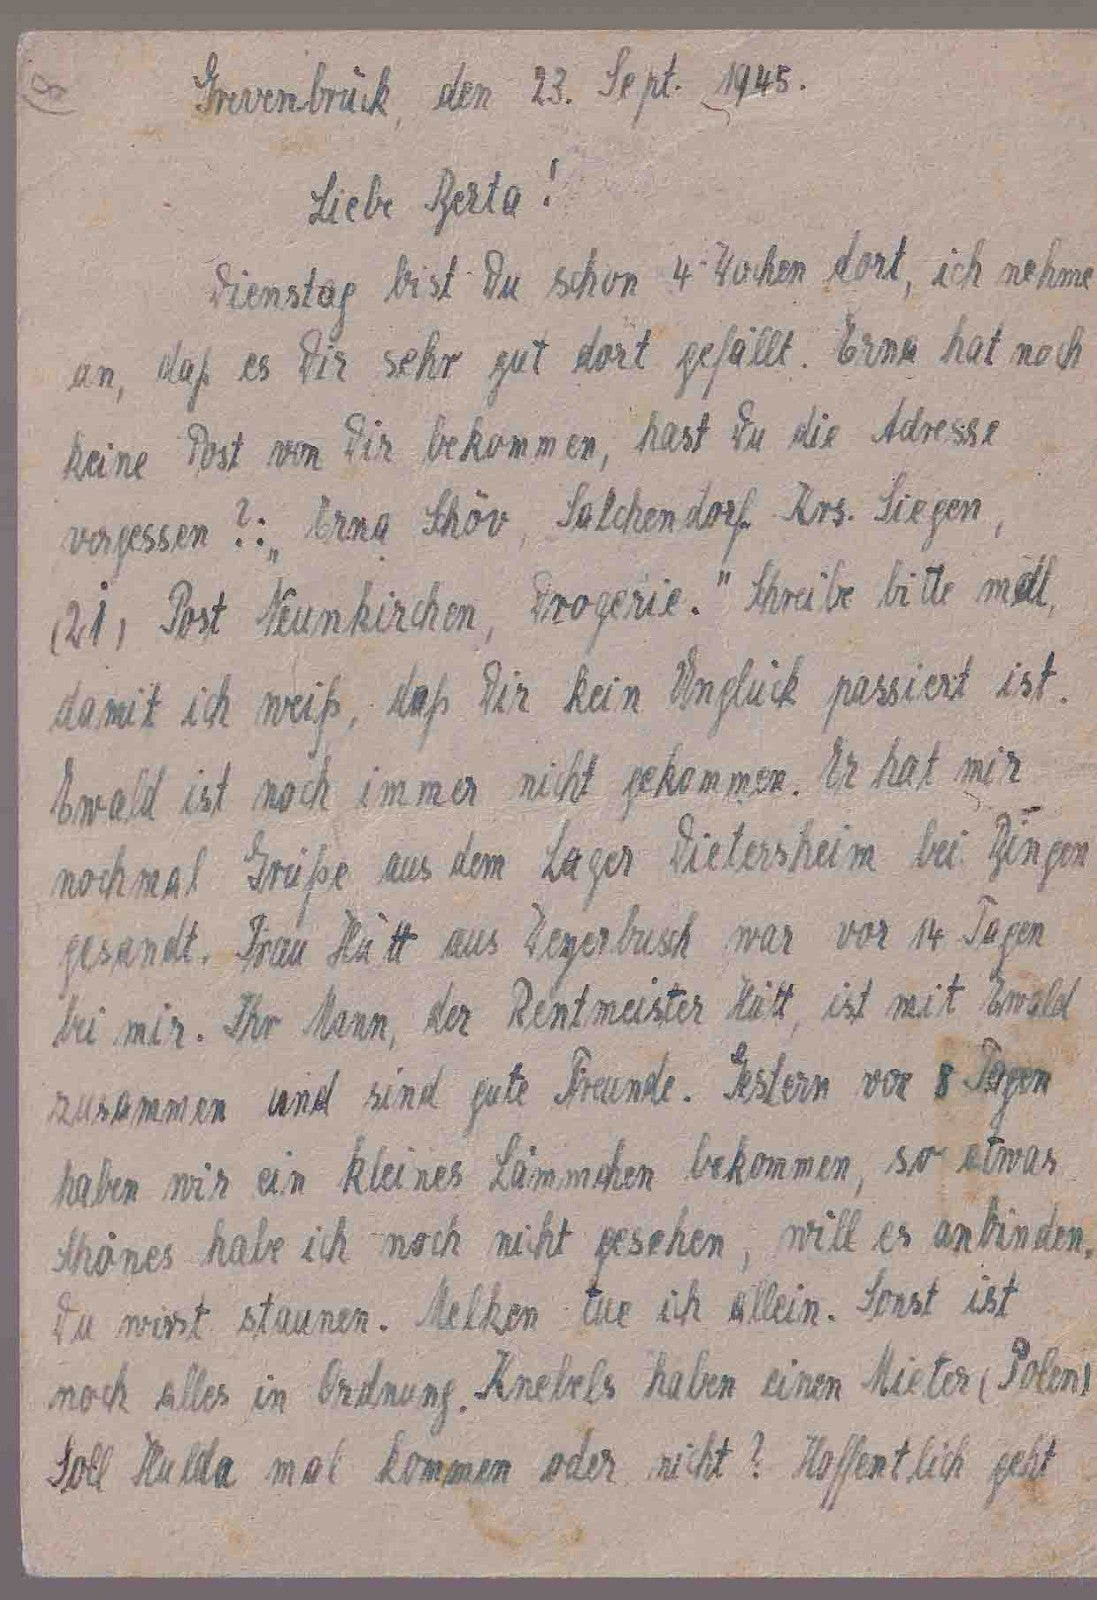 (8)
Grevenbrück, den 23. Sept. 1945.
Liebe Berta!
Dienstag bist Du schon 4 Wochen dort, ich nehme
an, daß es Dir sehr gut dort gefällt. Erna hat noch
keine Post von Dir bekommen, hast Du die Adresse
vergessen?: „Erna Schöv, Salchendorf Krs. Siegen,
(21) Post Neunkirchen, Drogerie." Schreibe bitte mal,
damit ich weiß, daß Dir kein Unglück passiert ist.
Ewald ist noch immer nicht gekommen. Er hat mir
nochmal Grüße aus dem Lager Dietersheim bei Bingen
gesandt. Frau Hütt aus Weyerbusch war vor 14 Tagen
bei mir. Ihr Mann, der Rentmeister Hütt, ist mit Ewald
zusammen und sind gute Freunde. Gestern vor 8 Tagen
haben wir ein kleines Lämmchen bekommen, so etwas
schönes habe ich noch nicht gesehen, will es anbinden.
Du wirst staunen. Melken tue ich allein. Sonst ist
noch alles in Ordnung. Knebels haben einen Mieter (Polen)
Soll Hulda mal kommen oder nicht? Hoffentlich geht